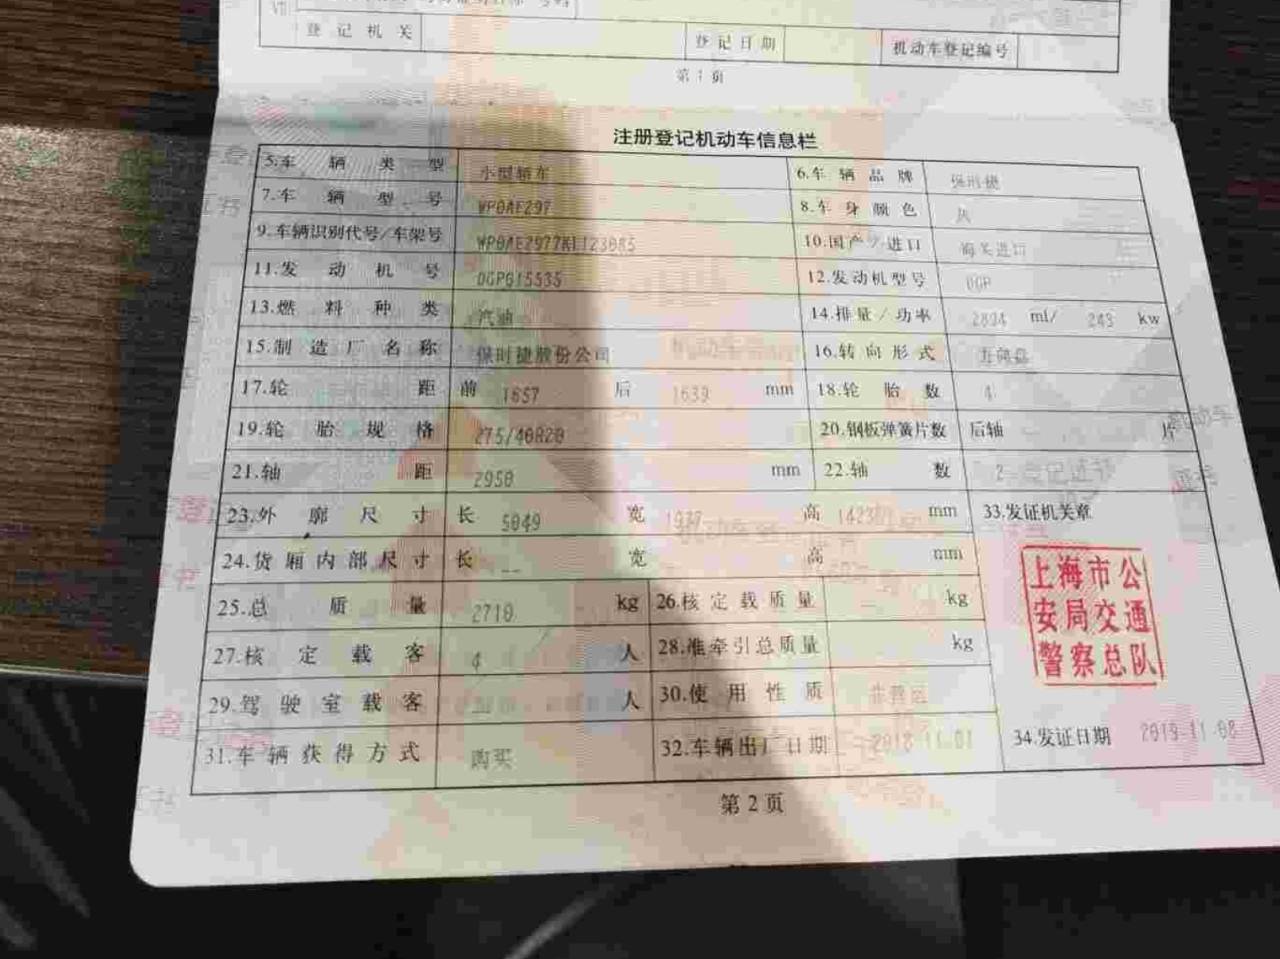 VII
登记机关 登记日期 机动车登记编号
第 1 页
注册登记机动车信息栏
5.车辆类型 小型轿车 6.车辆品牌 保时捷
7.车辆型号 WP0AE297 8.车身颜色 灰
9.车辆识别代号/车架号 10.国产/进口 海关进口
11.发动机号 DGP015535 12.发动机型号 DGP
13.燃料种类 汽油 14.排量/功率 2894 ml/ 243 kw
15.制造厂名称 保时捷股份公司 16.转向形式 方向盘
17.轮距 前 1657 后 1639 mm 18.轮胎数 4
19.轮胎规格 275/40R20 20.钢板弹簧片数 后轴 片
21.轴距 2950 mm 22.轴数 2
23.外廓尺寸 长 5049 宽 1937 高 1423 mm 33.发证机关章
24.货厢内部尺寸 长 -- 宽 高 mm
上海市公
安局交通
警察总队
25.总质量 2710 kg 26.核定载质量 kg
27.核定载客 4 人 28.准牵引总质量 kg
29.驾驶室载客 人 30.使用性质 非营运
31.车辆获得方式 购买 32.车辆出厂日期 2018-11-01 34.发证日期 2019-11-08
第 2 页